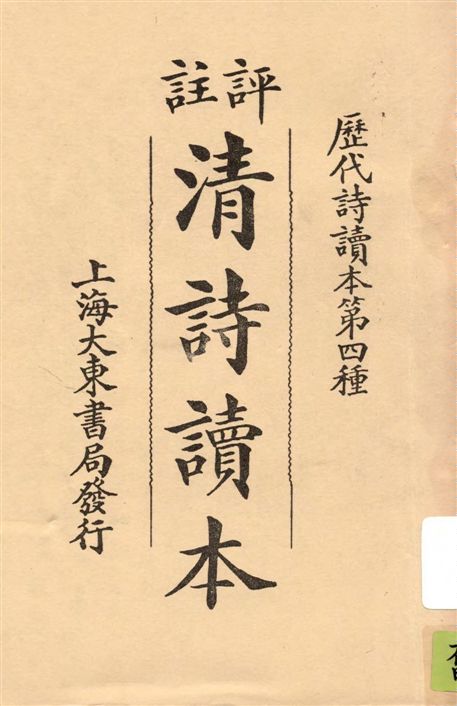 歷代詩讀本第四種
評註
清詩讀本
上海大東書局發行